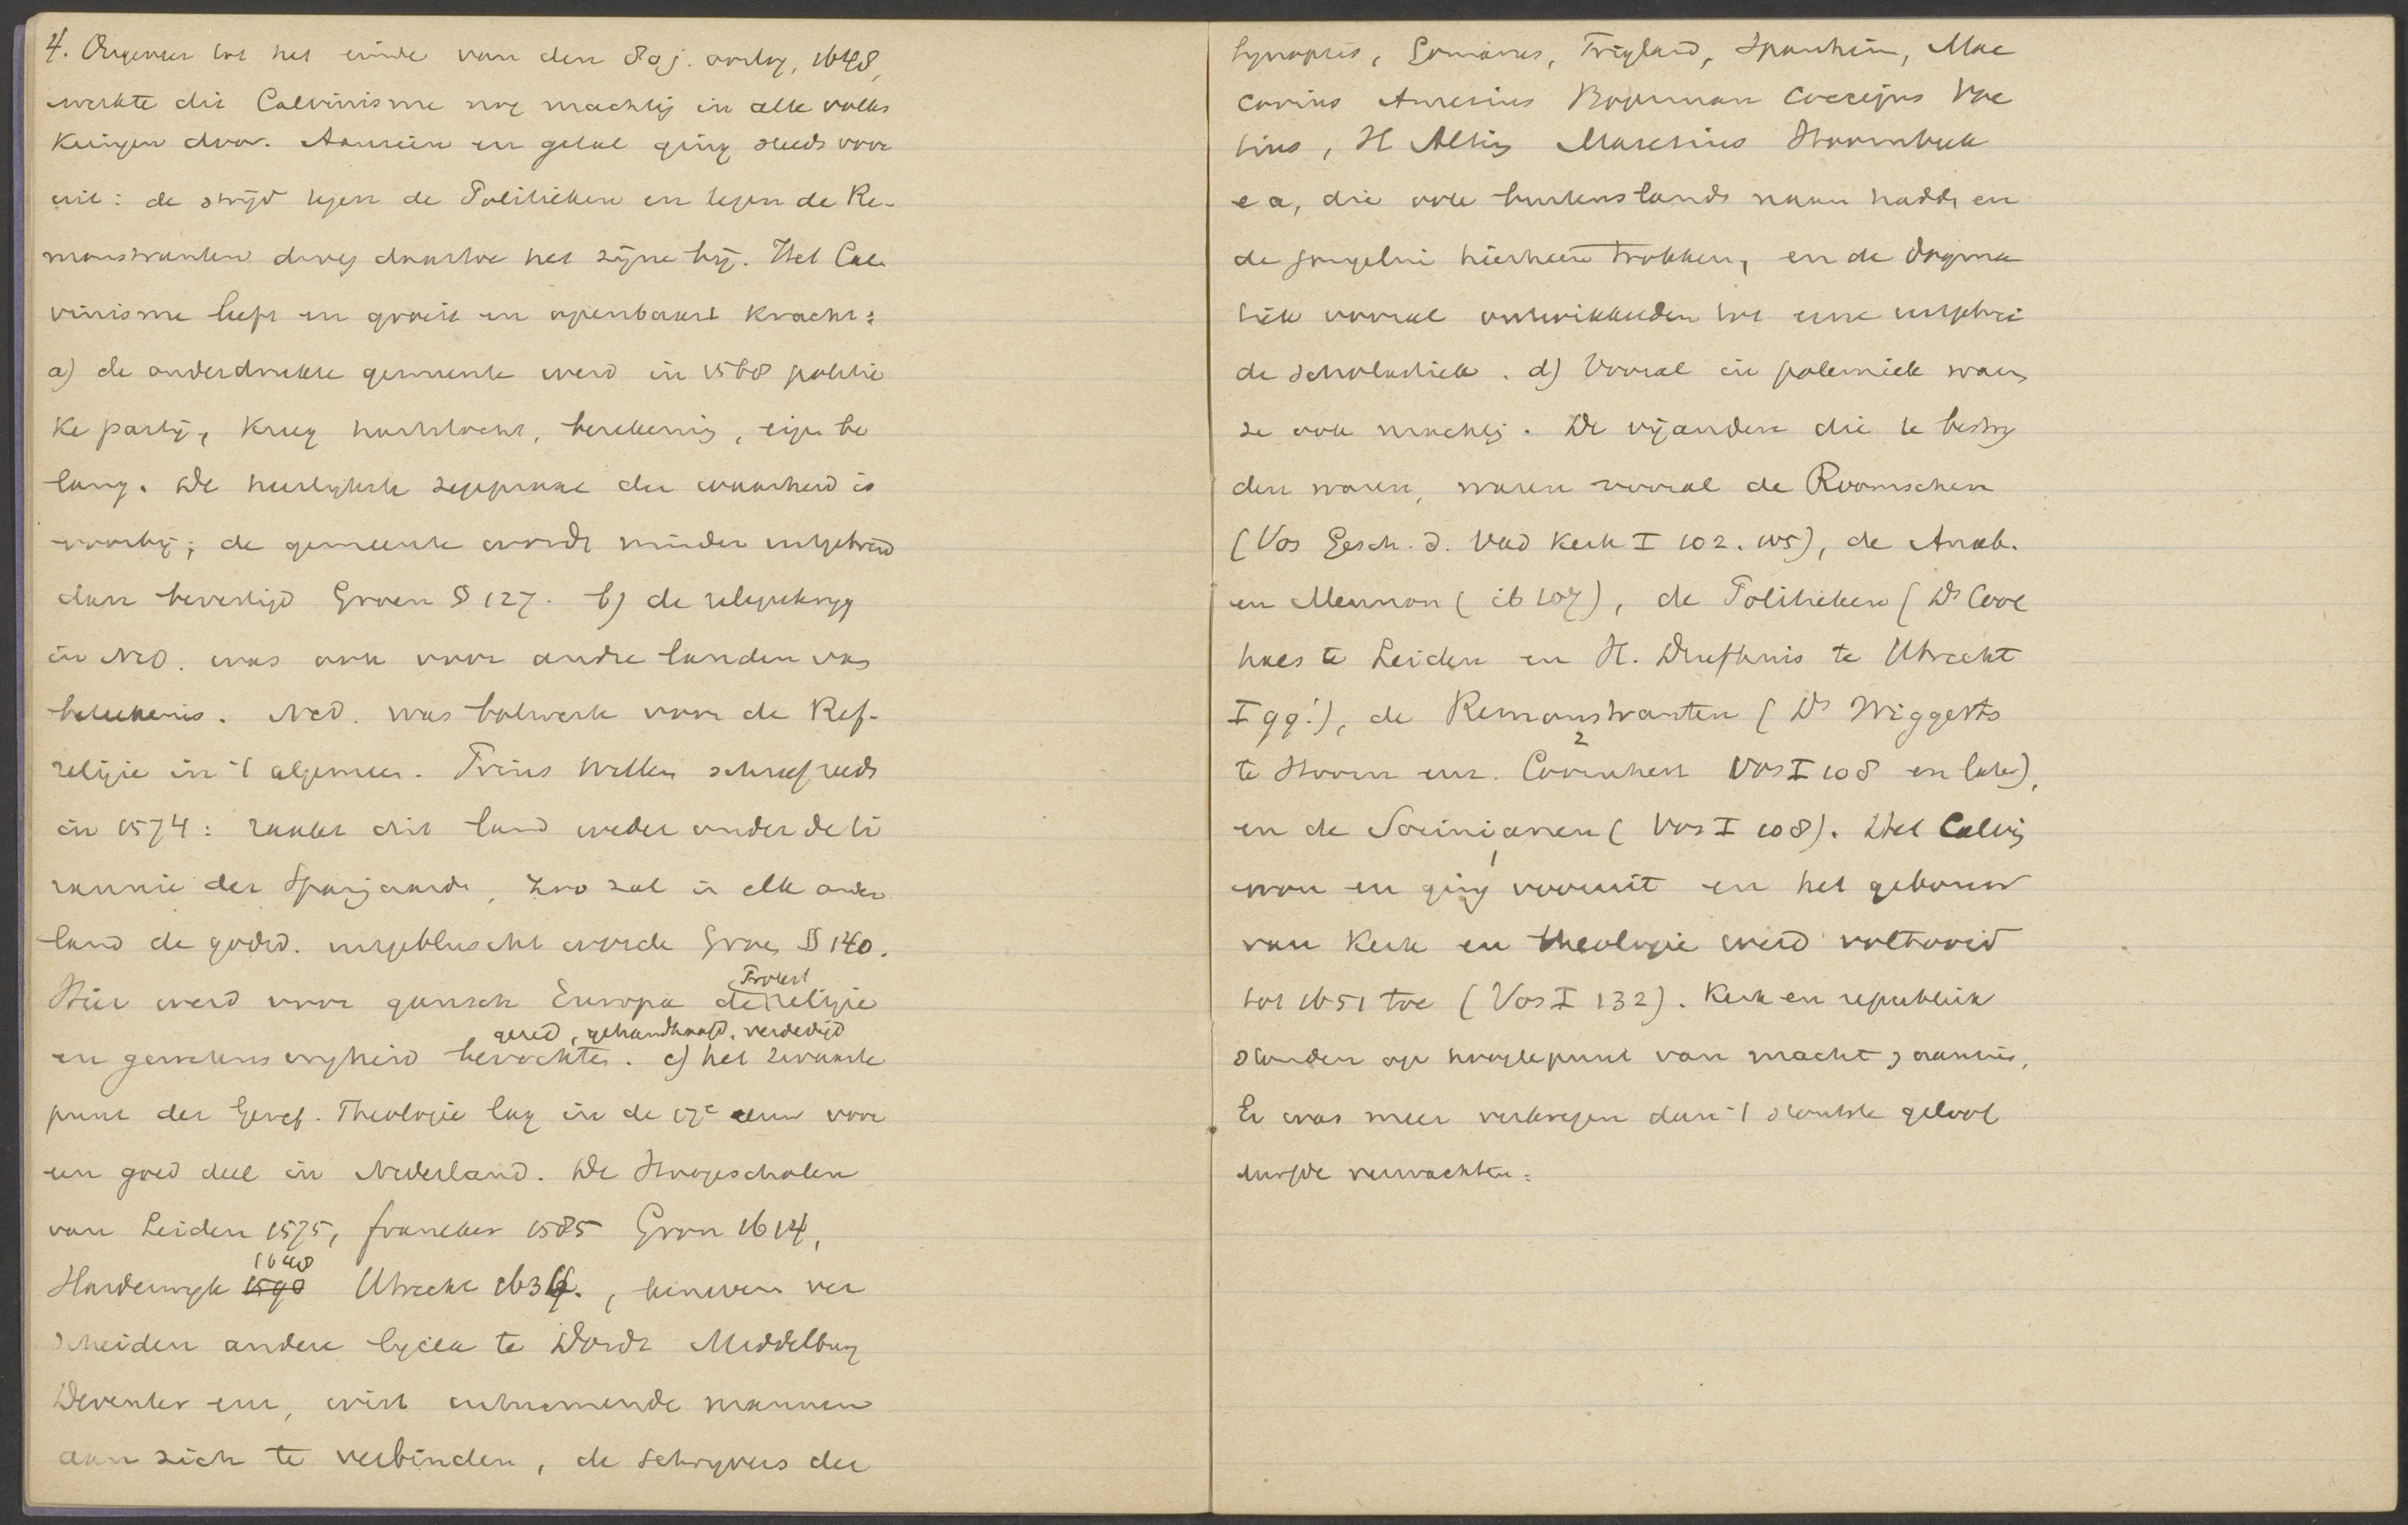 4. Ongeveer tot het einde van den 80j. oorlog, 1648,
werkte dit Calvinisme nog machtig in alle volks
kringen door. Aanzien en getal ging steeds voor
uit: de strijd tegen de Politieken en tegen de Re-
monstranten droeg daartoe het zijne bij. Het Cal
vinisme leeft en groeit en openbaart kracht:
a) de onderdrukte gemeente werd in 1568 politie
ke partij, kreeg hartstocht, berekening, eigen be
lang. De heerlijkste zegepraal der waarheid is
voorbij; de gemeente wordt minder uitgebreid
dan bevestigd Groen § 127. b) de religiekrijg
in Ned. was ook voor andre landen van
beteekenis. Ned. was bolwerk voor de Ref.
religie in 't algemeen. Prins Willem schreef reeds
in 1574: raakt dit land weder onder de ti
rannie der Spanjaards, zoo zal in elk ander
land de godsd. uitgebluscht worde Groen § 140.
Protest
Hier werd voor gansch Europa de religie
gered, gehandhaafd, verdedigd
en gewetens vryheid bevochten. c) het zwaarte
punt der Geref. Theologie lag in de 17e eeuw voor
een goed deel in Nederland. De Hoogescholen
van Leiden 1575, franeker 1585 Gron 1614,
1648
Harderwyk 1590 Utrecht 1634., benevens ver
scheiden andere lycea te Dordt Middelburg
Deventer enz, wist uitnemende mannen
aan zich te verbinden, de schryvers der
Synopsis, Gomarus, Trigland, Spanheim, Mac
covius Amesius Bogerman Coccejus Voe
tius, H Alting Maresius Hoornbeek
e a, die ook buitenslands naam hadden en
de jongelui hierheen trokken, en de dogma
tiek vooral ontwikkelden tot eene uitgebrei
de scholastiek. d) Vooral in polemiek waren
ze ook machtig. De vijanden die te bestry
den waren, waren vooral de Roomschen
(Vos Gesch. d. Vad Kerk I 102. 105), de Anab.
en Mennon (ib 107), de Politieken (Ds Cool
haes te Leiden en H. Duifhuis te Utrecht
I 99!), de Remonstranten (Ds Wiggerts
2
te Hoorn enz. Coornhert Vos I 108 en later),
en de Socinianen (Vos I 108). Het Calvin
won en ging vooruit en het gebouw
van Kerk en theologie werd voltooid
tot 1651 toe (Vos I 132). Kerk en republiek
stonden op hoogtepunt van macht aanzien,
Er was meer verkregen dan 't stoutste geloof
durfde verwachten.